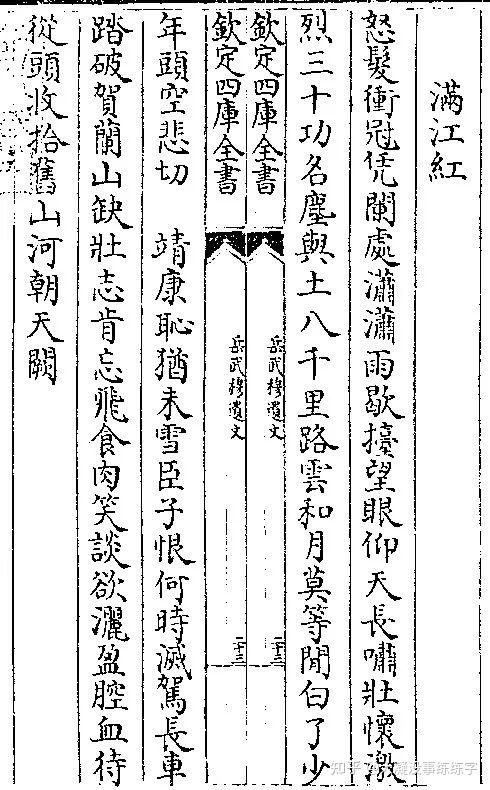 滿江紅
怒髮衝冠凭闌處瀟瀟雨歇擡望眼仰天長嘯壯懷激
烈三十功名塵與土八千里路雲和月莫等閒白了少
欽定四庫全書 岳武穆遺文 二十三
欽定四庫全書 岳武穆遺文 二十三
年頭空悲切 靖康恥猶未雪臣子恨何時滅駕長車
踏破賀蘭山缺壯志肯忘飛食肉笑談欲灑盈腔血待
從頭收拾舊山河朝天闕
知乎 没事练练字